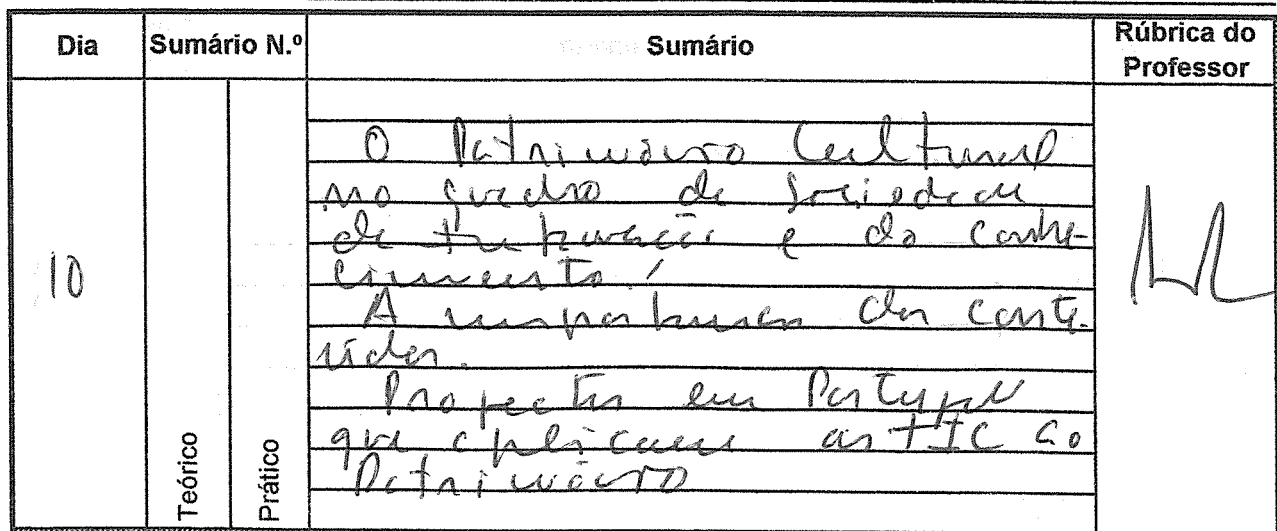 Dia Sumário N.º Sumário Rúbrica do Professor
10
Teórico
Prático
O Património Cultural
no quadro da Sociedade
da Informação e do Conhe-
cimento.
A importância dos conte-
údos.
Projectos em Portugal
que aplicam as TIC ao
Património